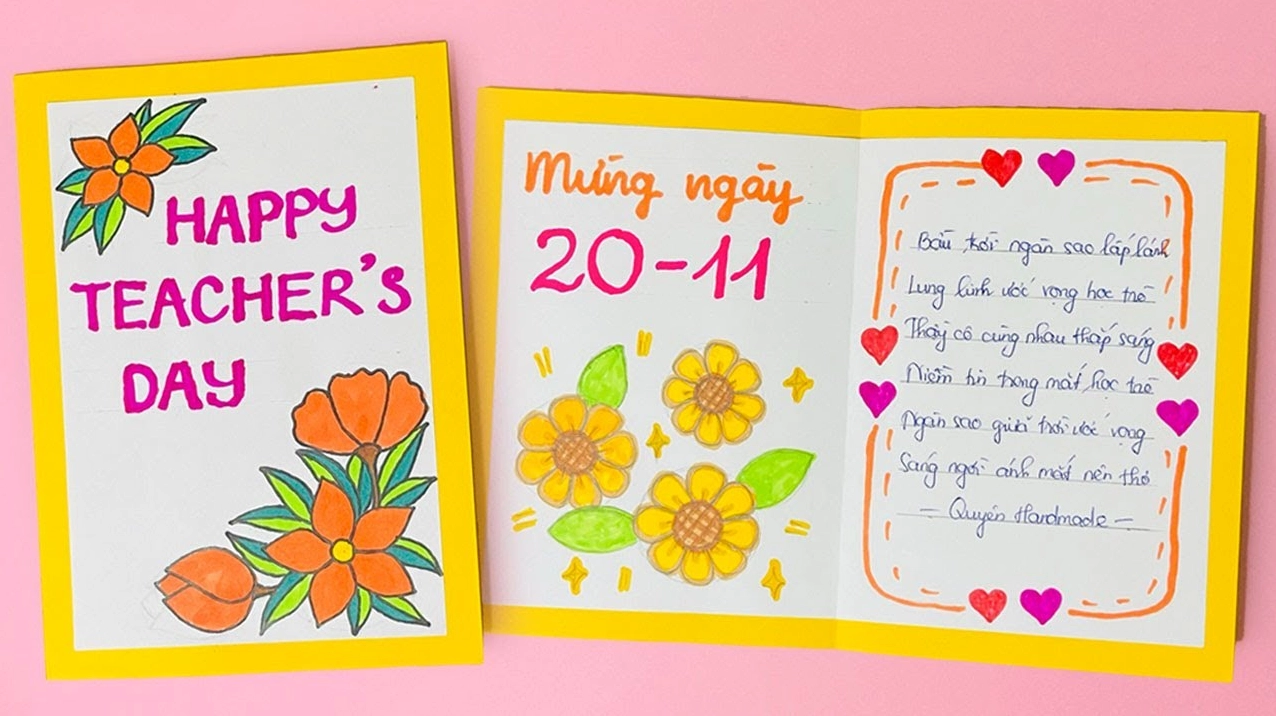 HAPPY
TEACHER'S
DAY
Mừng ngày
20-11
Bầu trời ngàn sao lấp lánh
Lung linh ước vọng học trò
Thầy cô cùng nhau thắp sáng
Niềm tin trong mắt học trò
Ngàn sao giữa trời ước vọng
Sáng ngời ánh mắt nên thơ
- Quyên Handmade -